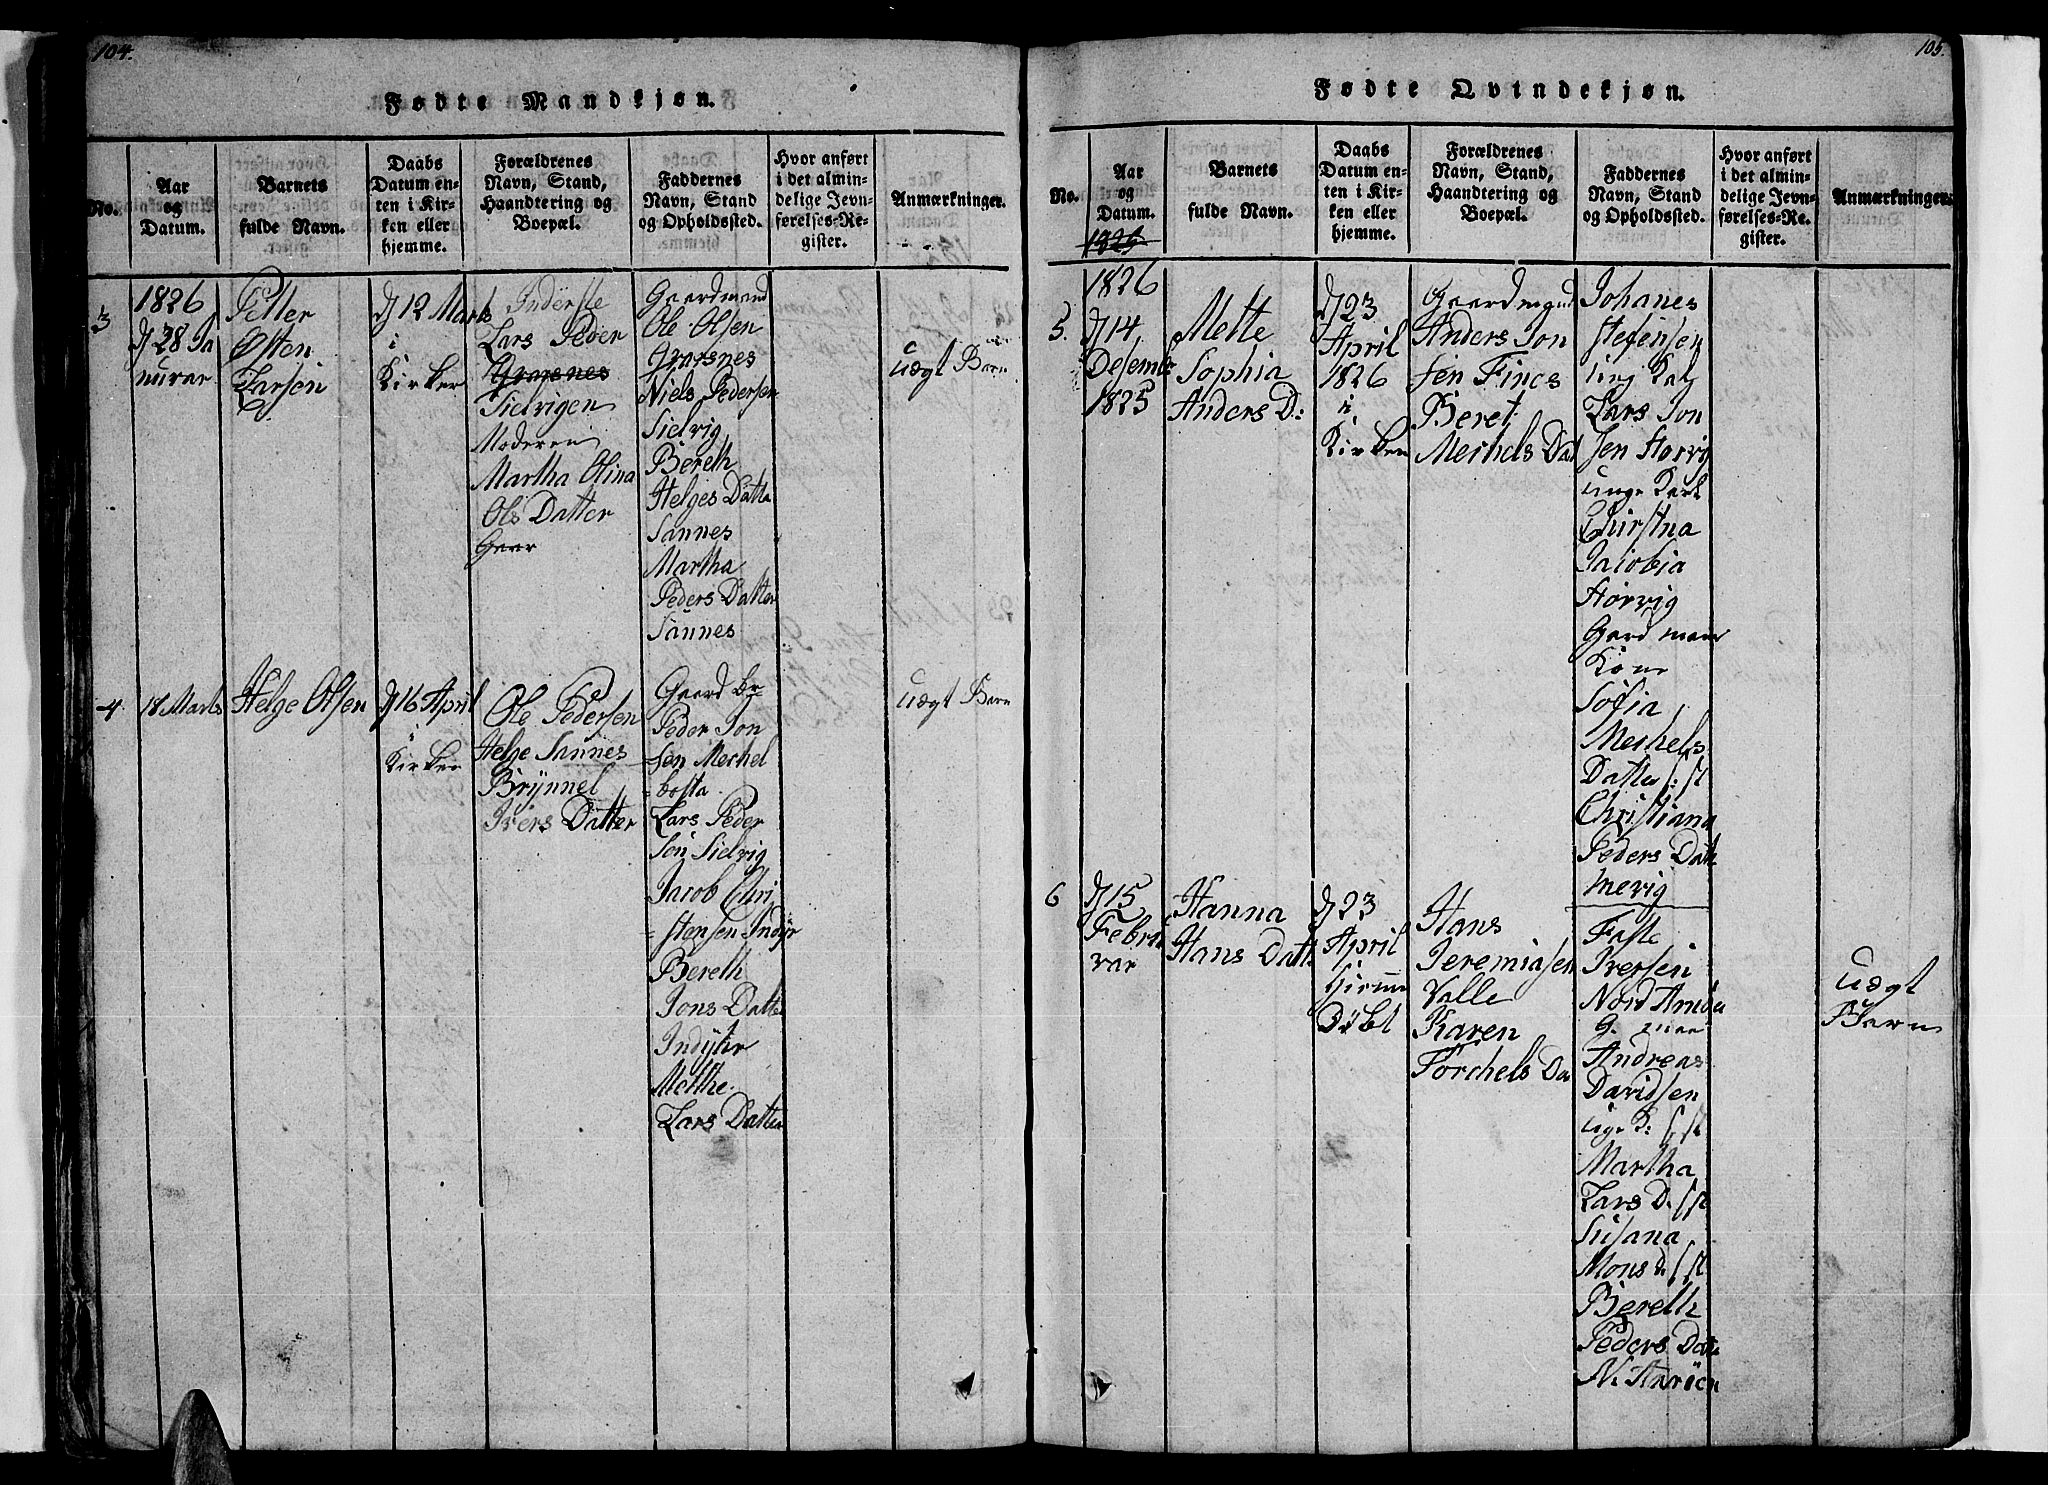 104.
Fødte Mandkjøn.
No.
Aar
og
Datum.
Barnets
fulde Navn.
Daabs
Datum en-
ten i Kir-
ken eller
hjemme.
Forældrenes
Navn, Stand,
Haandtering og
Boepæl.
Faddernes
Navn, Stand
og Opholdssted.
Hvor anført
i det almin-
delige Jevn-
førelses-Re-
gister.
Anmærkninger.
3
1826
d 28 Ja
nuvar
Petter
Often
Larsen
d 12 Marts
i
Kirken
Inderste
Lars Peder
Graesnes
Sielvigen
Moderen
Martha Olina
Ols Datter
Gaar
Gaardmand
Ole Olsen
Grasnes
Niels Pedersen
Sielvig
Bereth
Helges Datte
Sannes
Martha
Peders Datter
Sannes
uægt Barn
4
18 Marts
Helge Olsen
d 16 April
i
Kirken
Ole Pedersen
Helge Sannes
Brynnel
Ivers Datter
Gaard br
Peder Jon
sen Mechel
bosta
Lars Peder
Søn Sielvig
Jacob Chri
stensen Indyr
Bereth
Jons Datter
Indyhr
Methe
Lars Datter
uægt Barn
105.
Fødte Qvindekjøn.
No.
Aar
og
Datum.
1825
Barnets
fulde Navn.
Daabs
Datum en-
ten i Kir-
ken eller
hjemme.
Forældrenes
Navn, Stand,
Haandtering og
Boepæl.
Faddernes
Navn, Stand
og Opholdssted.
Hvor anført
i det almin-
delige Jevn-
førelses-Re-
gister.
Anmærkninger.
5.
1826
d 14
Desembr
1825
Mette
Sophia
Anders D:
d 23
April
1826
i
Kirken
Gaardmand
Anders Jon
sen Fines
Beret
Mechels Dat
Johanes
Stefensen
ung Kal
Lars Jon
sen Storvig
unge Karl
Chirstna
Jaiobia
Storvig
Gard mans
Kone
Sofia
Mechels
Datter S: St
Christiana
Peders Datt
mevig
6
d 15
Febru
var
Hanna
Hans Datt:
d 23
April
Døbt
Hans
Jeremiasen
Valle
Karen
Torchels Da
Faste
Iversen
Nord Arnøe
G. man
Andreas
Davidsen
uge K: S St
Martha
Lars D: S St
Susana
Mons D: S St
Bereth
Peders Datt
N. Arnöen
uægt
Barn